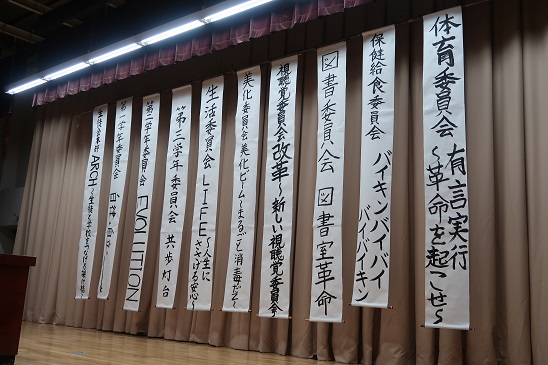 体育委員会 有言実行
～革命を起こせ～
保健給食委員会 バイキンバイバイ
バイバイキン
図書委員会 図書室革命
視聴覚委員会 改革～新しい視聴覚委員会～
美化委員会 美化ビーム～まるごと消毒だZ～
生活委員会 LIFE～人生に
ささげる安心～
第三学年委員会 共歩灯台
第二学年委員会 EVOLUTION
第一学年委員会
ARCH～生徒と学校をつなげる架け橋～